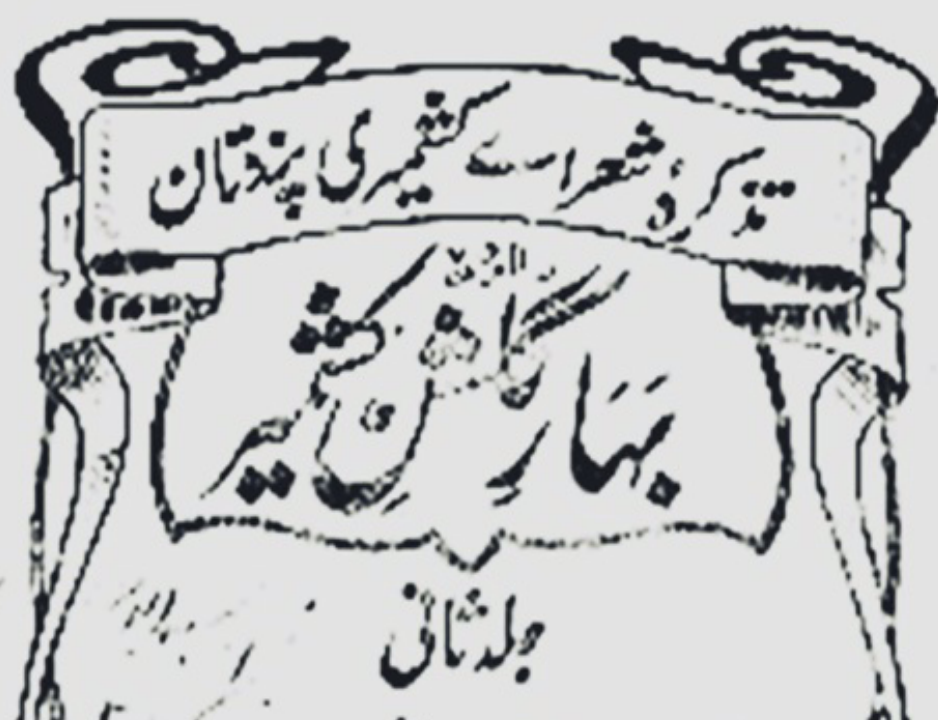 تذکرۂ شعراے کشمیری پنڈتان
بہارِ گلشنِ کشمیر
جلد ثانی